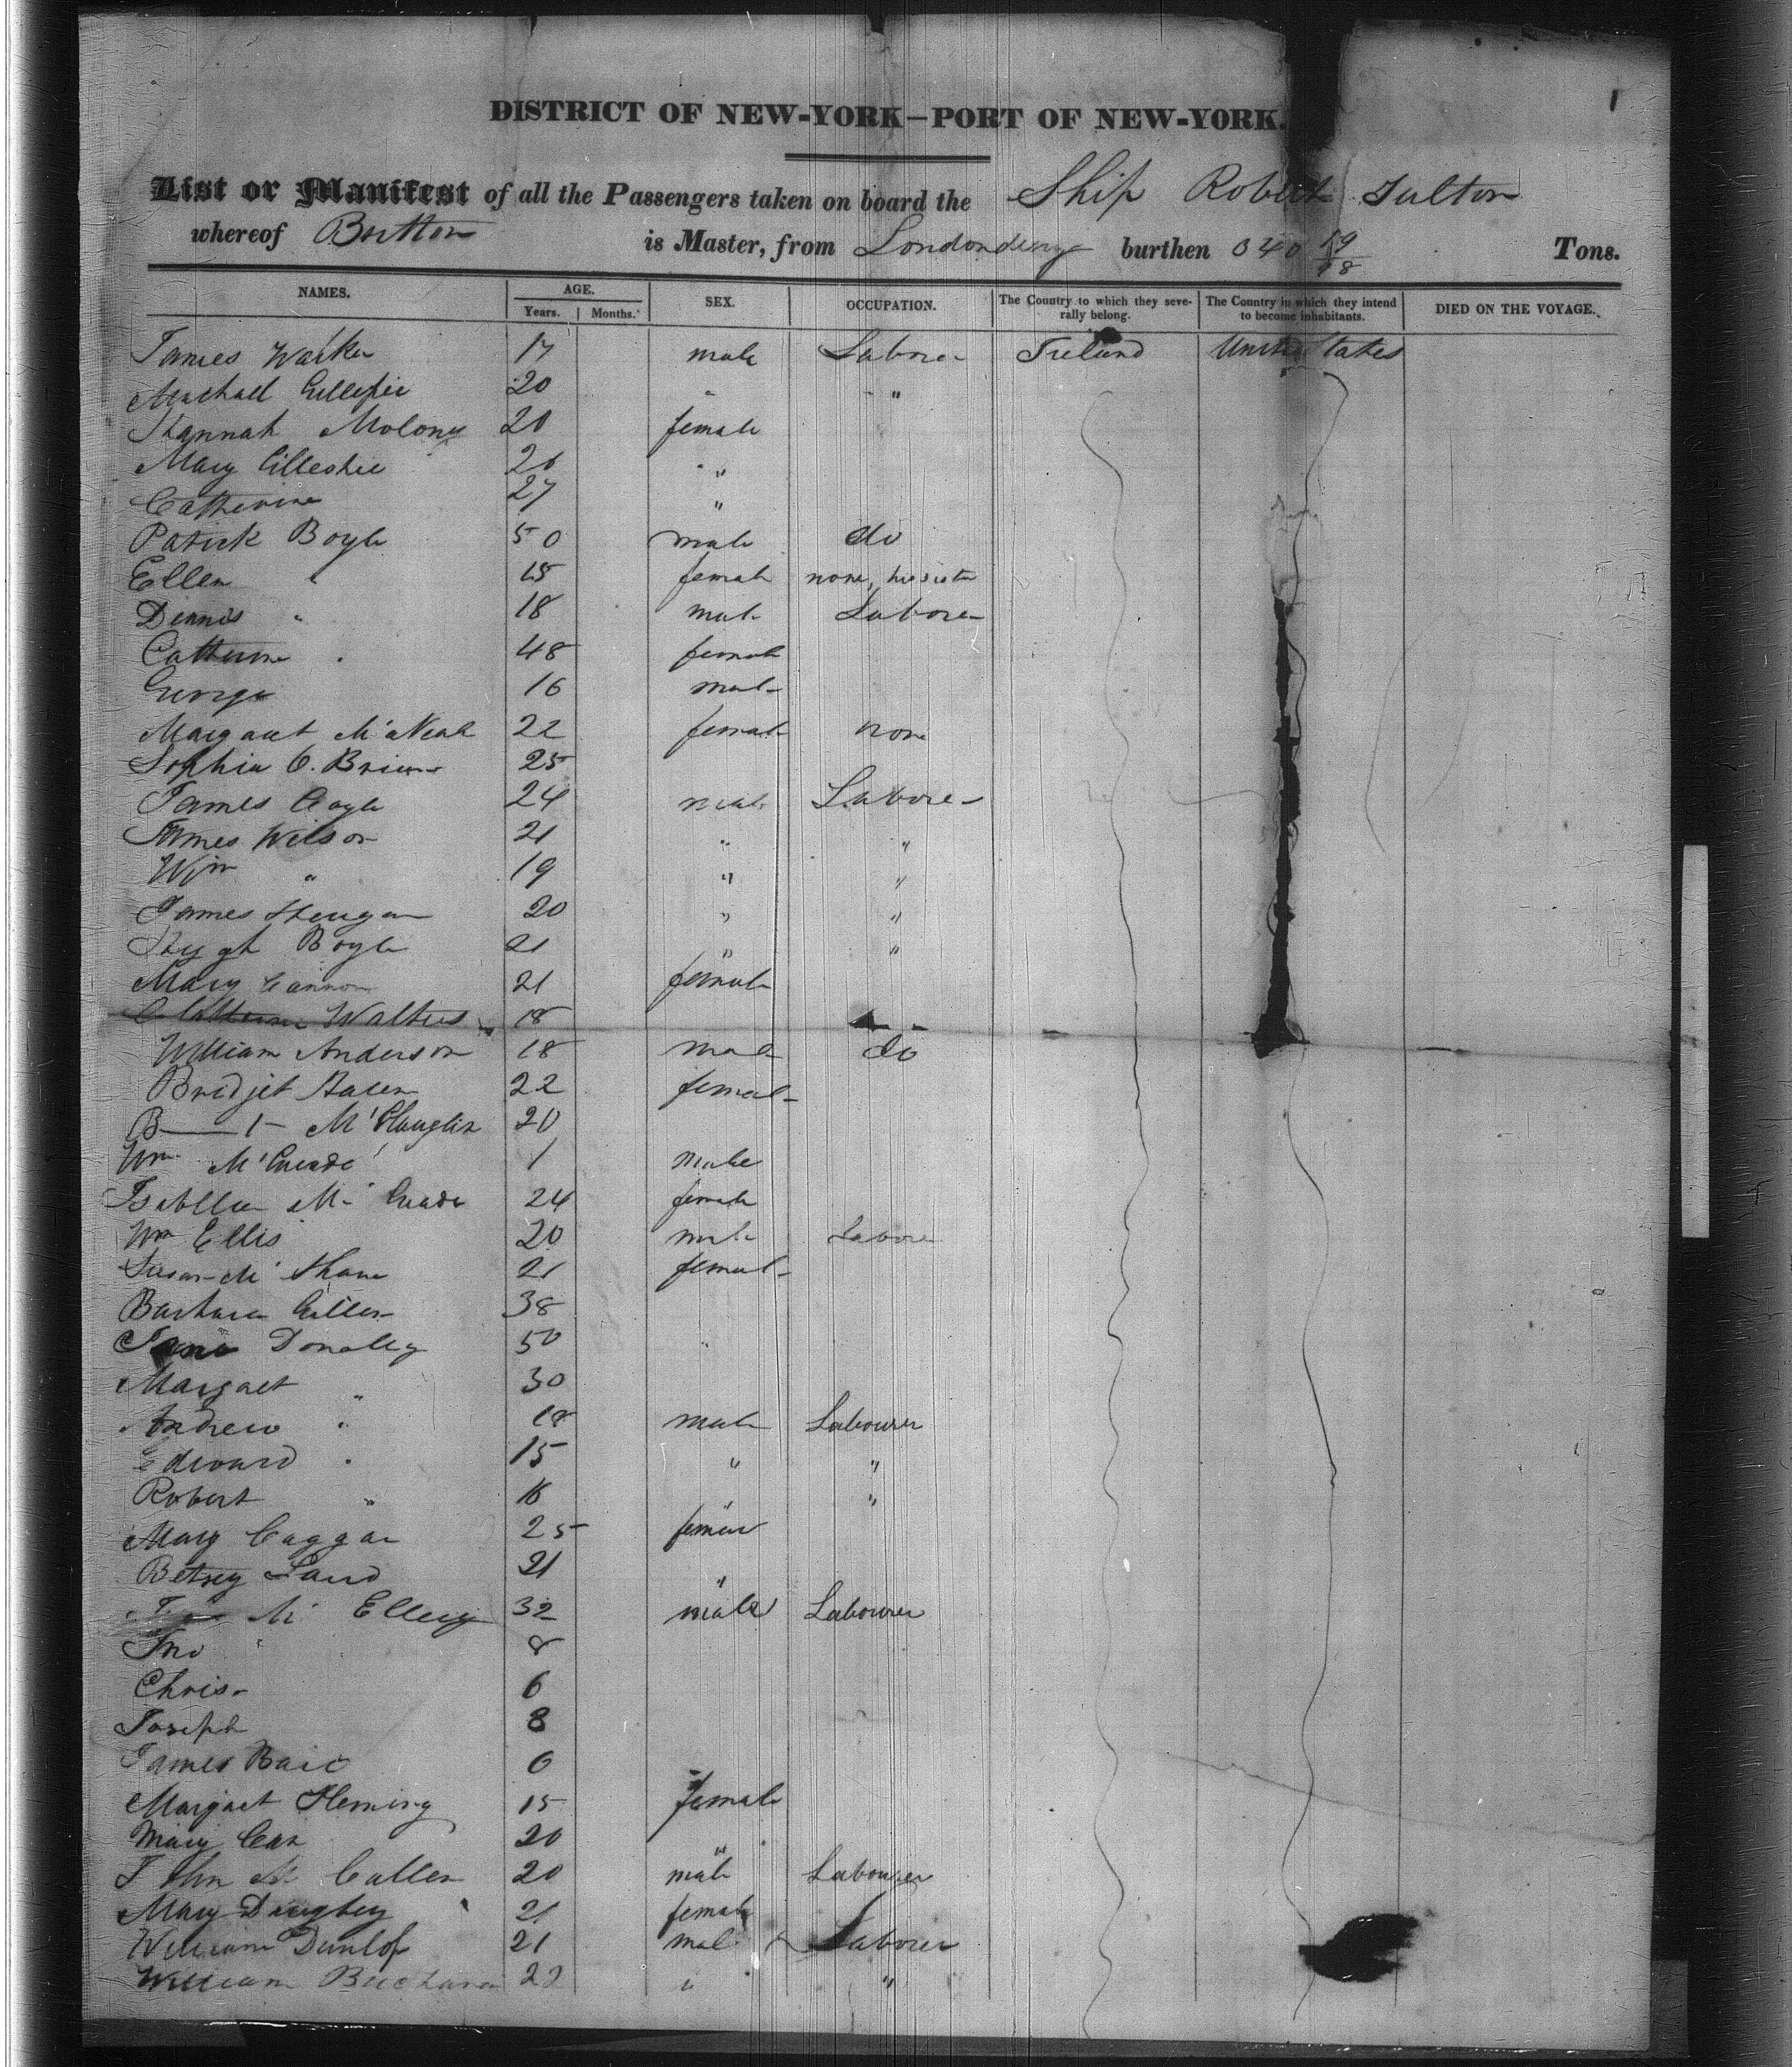 1
DISTRICT OF NEW-YORK—PORT OF NEW-YORK.
List or Manifest of all the Passengers taken on board the Ship Robert Fulton
whereof Britton is Master, from Londonderry burthen 340 Tons.
NAMES. AGE. Years. Months. SEX. OCCUPATION. The Country to which they severally belong. The Country in which they intend to become inhabitants. DIED ON THE VOYAGE.
James Walker 17 male Labore Ireland United States
Michael Gillespie 20 " "
Hannah Molony 20 female
Mary Gilleshie 26 "
Catherine 27 "
Patrick Boyle 50 male do
Ellen " 15 female none, his sister
Dennis " 18 male Laborer
Catherine " 48 female
George 16 male
Margaret M'Neal 22 female none
Sophia O.Brien 25
James Coyle 24 male Laborer
James Wilson 21 " "
Wm " 19 " "
James Heugan 20 " "
Hugh Boyle 21 " "
Mary Cannon 21 female
Catherine Walters 18
William Anderson 18 male do
Bridjet 22 female
B 20
Wm M'Quade 1 Male
Isabella M'Quade 24 female
Wm Ellis 20 male Labore
Susan M'Shane 21 female
Barbara Gillen 38
Jane Donally 50 "
Margaet " 30
Andrew " 18 male Labourer
Edward " 15 " "
Robert " 16 " "
Mary Caggan 25 female
Betsey Laird 21 "
M' Ellery 32 male Labourer
Jno " 8
Chris- 6
Joseph 8
James Baird 6
Margaet Fleming 15 female
Mary Carr 20 "
John M Cullen 20 male Labourer
Mary Dougbey 21 female
William Dunlop 21 male Laborer
William Buchanan 22 " "